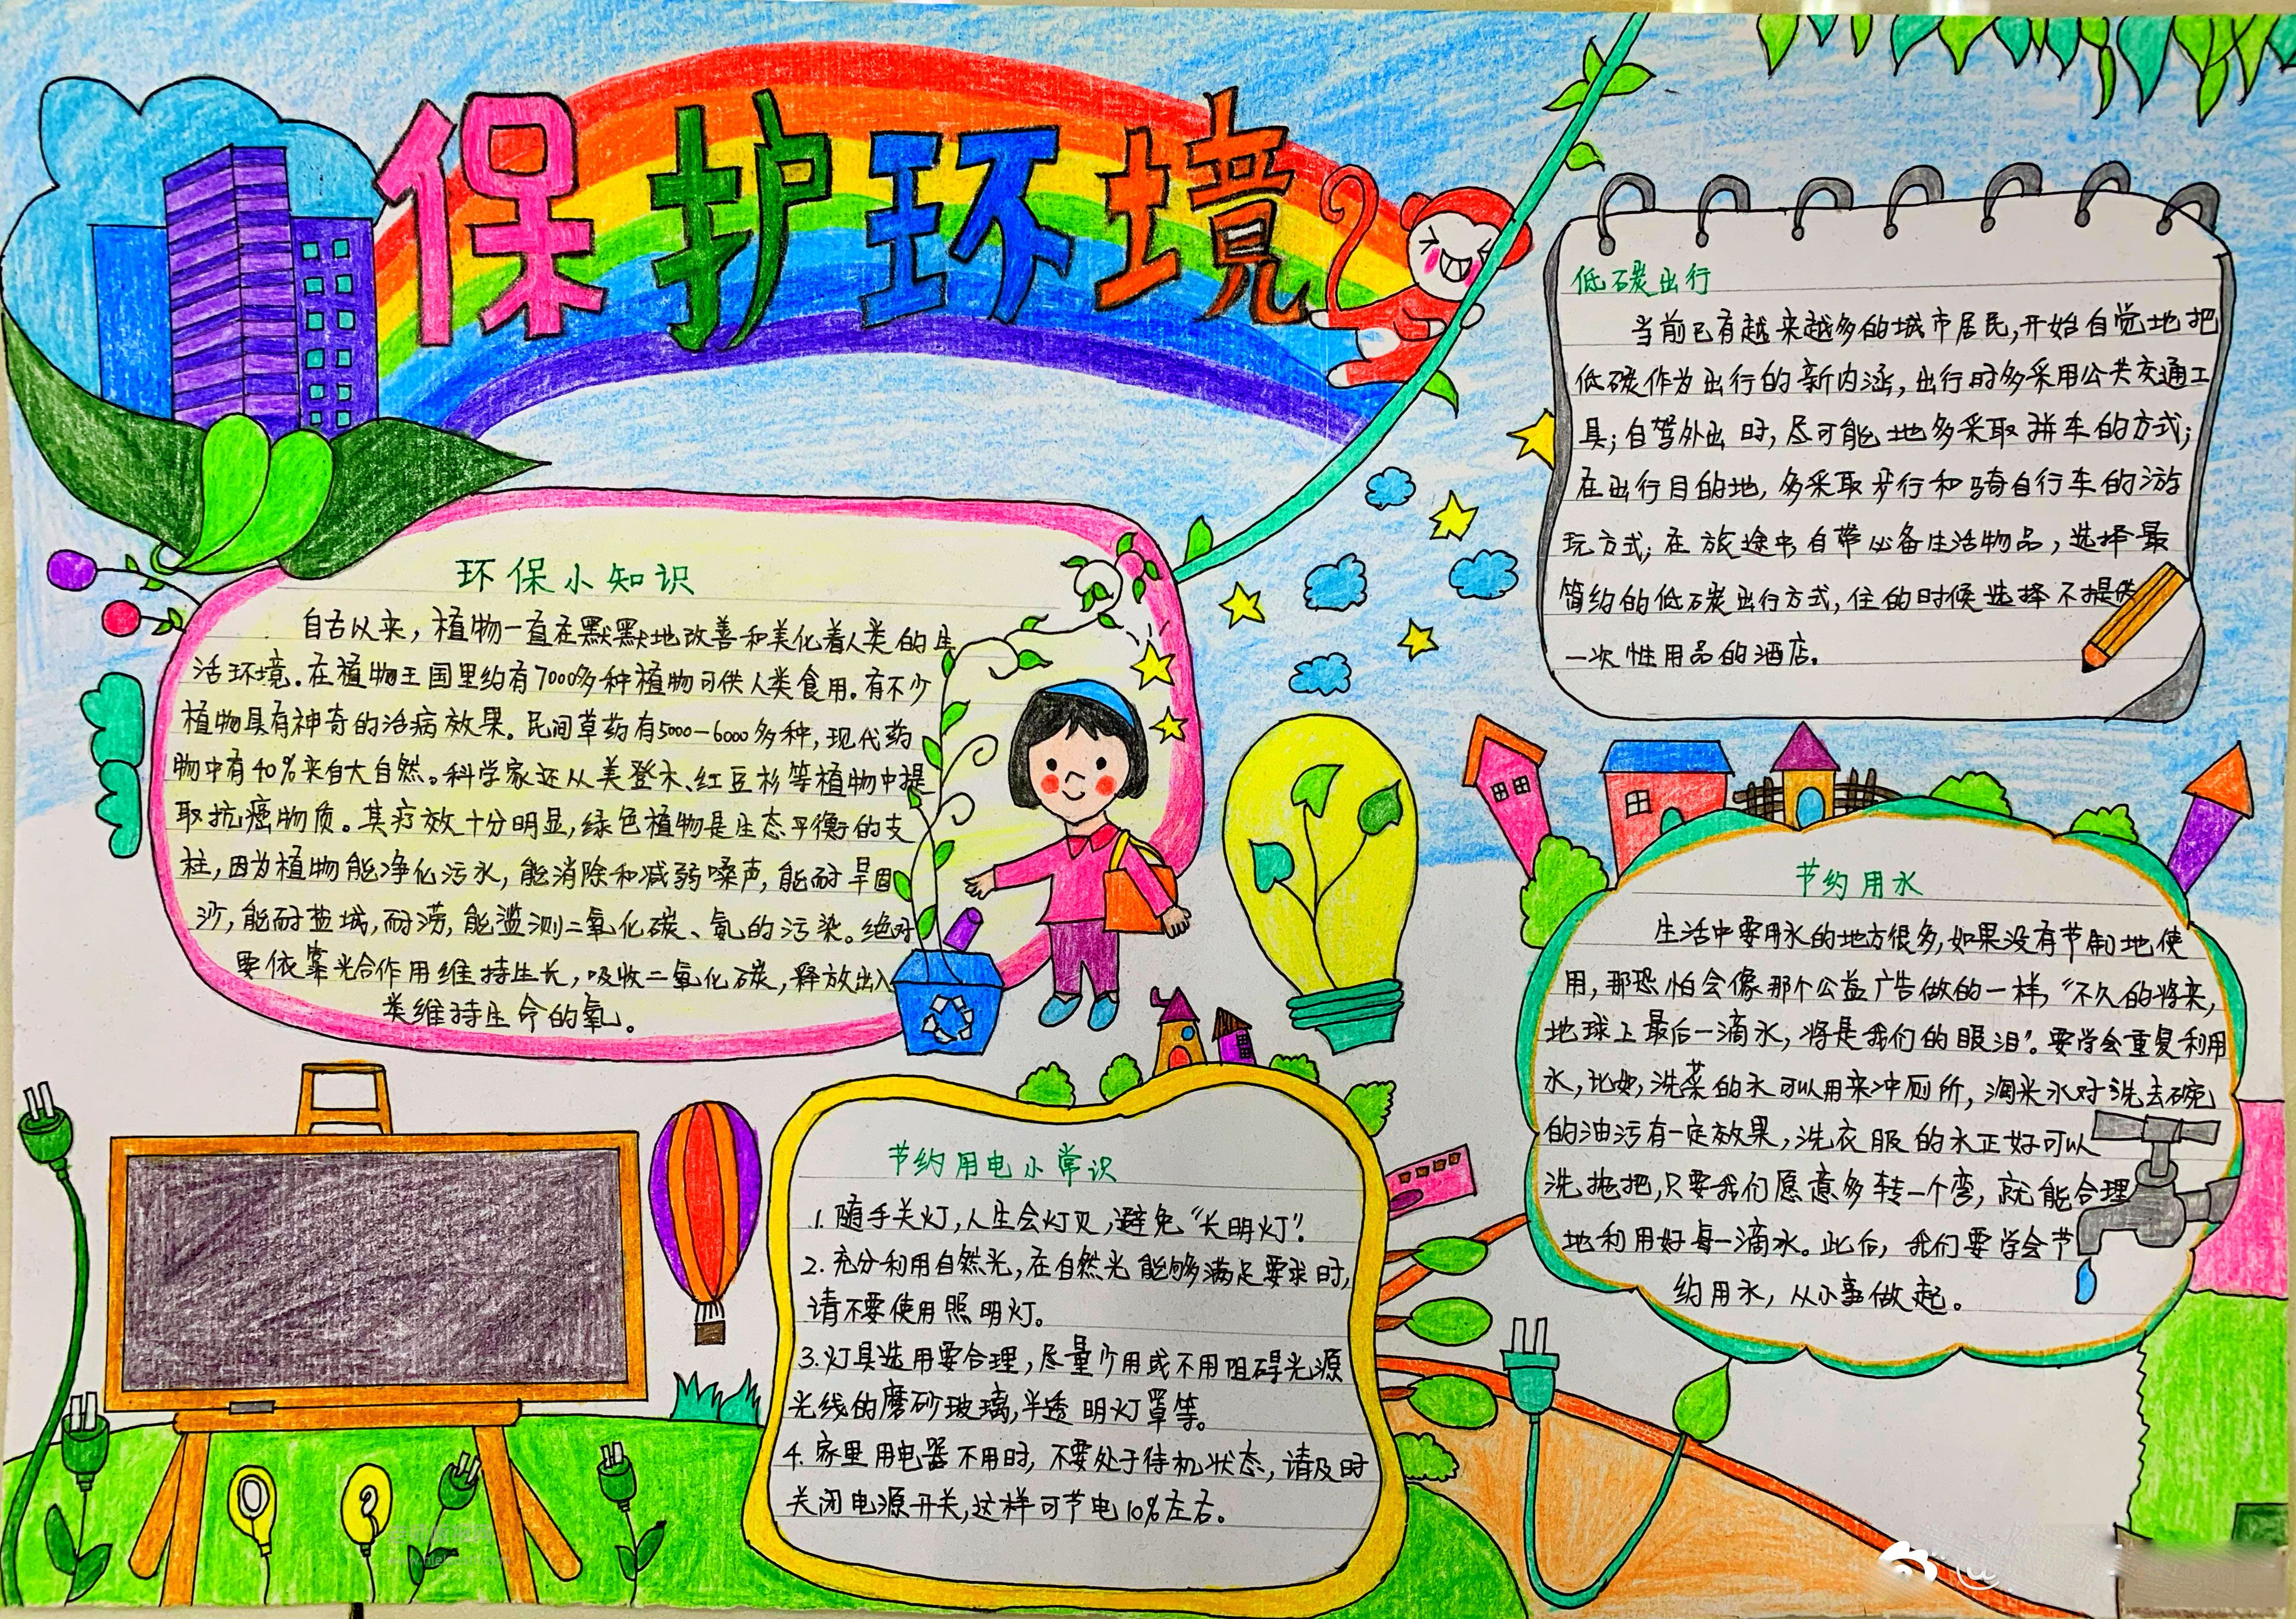 保护环境
环保小知识
自古以来，植物一直在默默地改善和美化着人类的生
活环境。在植物王国里约有7000多种植物可供人类食用。有不少
植物具有神奇的治病效果。民间草药有5000-6000多种，现代药
物中有40%来自大自然。科学家还从美登木、红豆杉等植物中提
取抗癌物质。其疗效十分明显，绿色植物是生态平衡的支
柱，因为植物能净化污水，能消除和减弱嗓声，能耐旱固
沙，能耐盐城，耐涝，能滥测二氧化碳、氨的污染。绝对
要依靠光合作用维持生长，吸收二氧化碳，释放出人
类维持生命的氧。
低碳出行
当前已有越来越多的城市居民，开始自觉地把
低碳作为出行的新内涵，出行时多采用公共交通工
具；自驾外出时，尽可能地多采取拼车的方式；
在出行目的地，多采取步行和骑自行车的游
玩方式；在旅途中自带必备生活物品，选择最
简约的低碳出行方式，住的时候选择不提供
一次性用品的酒店。
节约用水
生活中要用水的地方很多，如果没有节制地使
用，那恐怕会像那个公益广告做的一样，“不久的将来，
地球上最后一滴水，将是我们的眼泪”。要学会重复利用
水，比如，洗菜的水可以用来冲厕所，淘米水对洗去碗
的油污有一定效果，洗衣服的水正好可以
洗拖把，只要我们愿意多转一个弯，就能合理
地利用好每一滴水。此后，我们要学会节
约用水，从小事做起。
节约用电小常识
1. 随手关灯，人生会灯见，避免“长明灯”！
2. 充分利用自然光，在自然光能够满足要求时，
请不要使用照明灯。
3. 灯具选用要合理，尽量少用或不用阻碍光源
光线的磨砂玻璃，半透明灯罩等。
4. 家里用电器不用时，不要处于待机状态，请及时
关闭电源开关，这样可节电10%左右。